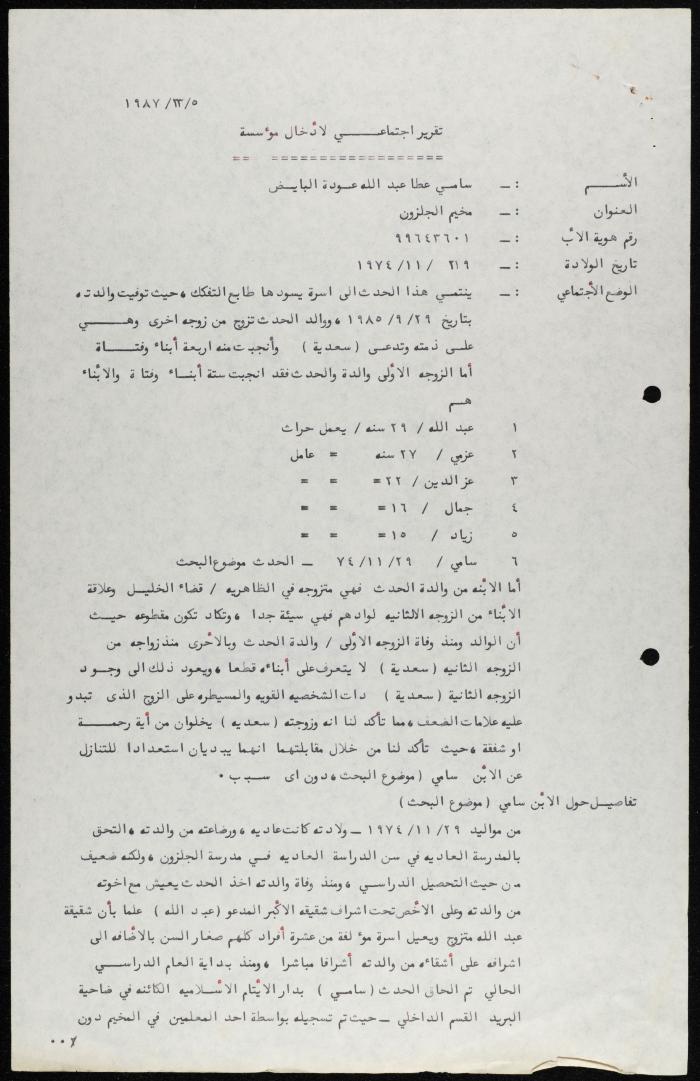 ١٩٨٧/١٢/٥
تقرير اجتماعـــــي لادٔخال موٴسسة
== =================
الأســـم : ــ سامـي عطا عبد الله عـودة البايـض
العنوان : ــ مخيم الجلزون
رقم هوية الأب : ــ ٩٩٦٤٣٦٠١
تاريخ الولادة : ــ ٢٩ /١٩٧٤/١١
الوضع الأجتماعي : ــ ينتمـي هذا الحدث الى اسرة يسودها طابع التفكك ، حيث توفيت والدته
بتاريخ ١٩٨٥/٩/٢٩ ، ووالد الحدث تزوج من زوجه اخرى وهـــي
علـى ذمته وتدعـى ( سعدية ) وأنجبت منه اربعة أبناء وفتـــاة
أما الزوجه الأولى والدة والحدث فقد انجبت ستة أبنـــاء وفتا ة والابٔناء
هـــم
١ عبد الله / ٢٩ سنه / يعمل حراث
٢ عزمي / ٢٧ سنه = عامل
٣ عز الدين / ٢٢ = = =
٤ جمال / ١٦ = = =
٥ زياد / ١٥ = = =
٦ سامي / ٧٤/١١/٢٩ ــ الحدث موضوع البحث
أما الابٔنه من والدة الحدث فهي متزوجه في الظاهريه / قضاء الخليـل وعلاقة
الابٔناء من الزوجه الالثانيه لوادهم فهي سيئة جدا ، وتكاد تكون مقطوعه حيـــث
أن الوالد ومنذ وفاة الزوجه الاؤلى / والدة الحدث وبالأحرى منذ زواجه من
الزوجه الثانيه ( سعدية ) لا يتعرف على أبناءه قطعا ، ويعود ذلك الى وجــو د
الزوجه الثانية ( سعدية ) ذات الشخصيه القويه والمسيطره على الزوج الذى تبدو
عليه علامات الضعف ، مما تأكد لنا انه وزوجته ( سعديه ) يخلوان من أية رحمـــة
او شفقة ، حيث تأكد لنا من خلال مقابلتهما انهما يبديان استعدادا للتنازل
عن الابٔن سامي ( موضوع البحث ، دون اى ســـبب .
تفاصيـل حول الابٔن سامي ( موضوع البحث )
من مواليد ١٩٧٤/١١/٢٩ ــ ولادته كانت عاديه ، ورضاعته من والدته ، التحق
بالمدرسة العاديه في سن الدراسة العاديه فـــي مدرسة الجلزون ، ولكنه ضعيف
من حيث التحصيل الدراسـي ، ومنذ وفاة والدته اخذ الحدث يعيش مع اخوته
من والدته وعلى الاخٔص تحت اشراف شقيقه الاكٔبر المدعو ( عبد الله ) علما بأن شقيقة
عبد الله متزوج ويعيل اسرة موٴلفة من عشرة أفراد كلهم صغار السن بالاضٔافه الى
اشرافه على أشقاءه من والدته أشرافا مباشرا ، ومنذ بداية العام الدراســي
الحالي تم الحاق الحدث ( سامـي ) بدار الائتام الاسٔلاميه الكائنه في ضاحية
البريد القسم الداخلي ــ حيث تم تسجيله بواسطة احد المعلمين في المخيم دون
٢ ٠٠